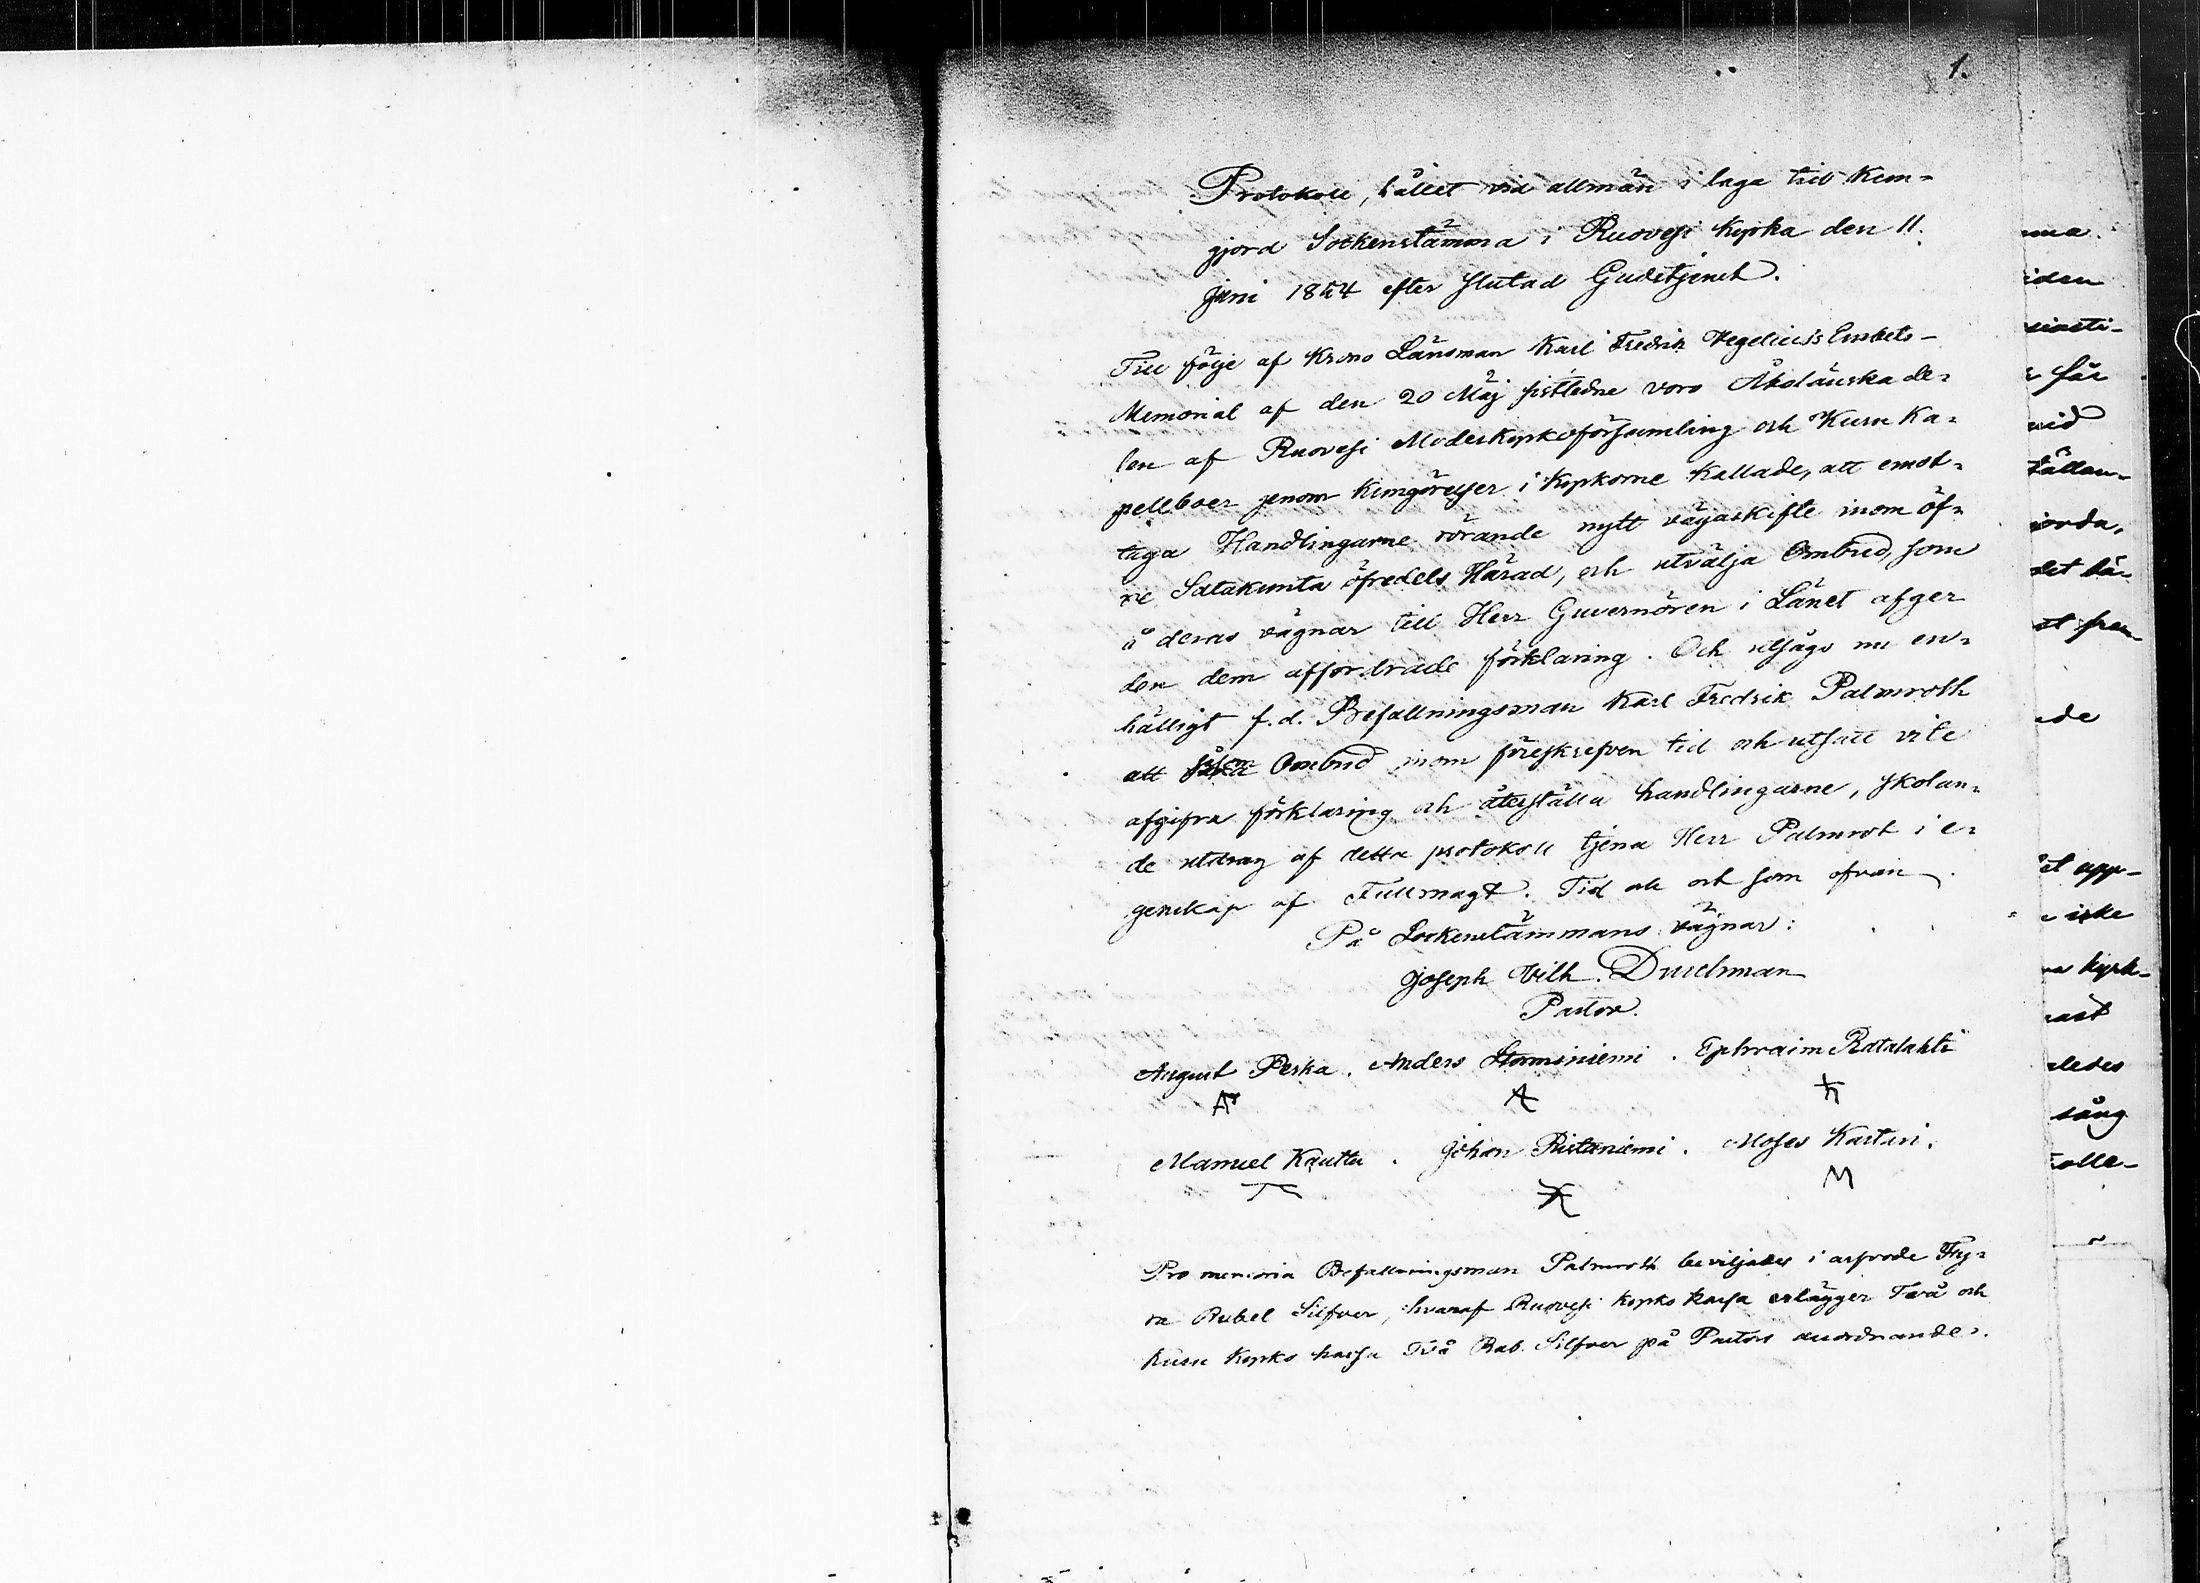 1.
Protokoll, hållet vid allmän i laga tid kun-
gjord Sockenstämma i Ruovesi kyrka den 11.
Juni 1854 efter slutad Gudstjenst.
Till följe af Krono Länsman Karl Fredrik Hegelius's Embets-
Memorial af den 20 Maj sistledne voro Åboländska de-
len af Ruovesi Moderkyrkoförsamling och Kuru Ka-
pellboer genom kungörelser i kyrkorne kallade, att emot-
taga Handlingarne rörande nytt vägaskifte inom öf-
re Satakunta öfredels Härad, och utvälja Ombud, som
å deras vägnar till Herr Guvernören i Länet afger
den dem affordrade förklaring. Och utsågs nu en-
hälligt f.d. Befallningsman Karl Fredrik Palmroth
att såsom Ombud inom föreskrefven tid och utsatt vite
afgifva förklaring och återställa handlingarne, skolan-
de utdrag af detta protokoll tjena Herr Palmrot i e-
genskap af Fullmagt. Tid och ort som ofvan.
På Sockenstämmans vägnar:
Joseph Wilh. Durchman
Pastor.
August Peska. Anders Storminiemi. Ephraim Ratalahti
Manuel Kauttu. Johan Ristaniemi. Moses Karttu.
M
Pro memoria Befallningsman Palmroth beviljades i arfvode Fy-
ra Rubel Silfver, hvaraf Ruovesi kyrko kassa erlägger Två och
Kuru kyrko kassa Två Rub. Silfver på Pastors anordnande.
ma
iden
r får
vid
tällan-
jorda,
det bä-
st fram-
ade
et upp-
icke
kyrk-
nast
ledes
sång
olle-